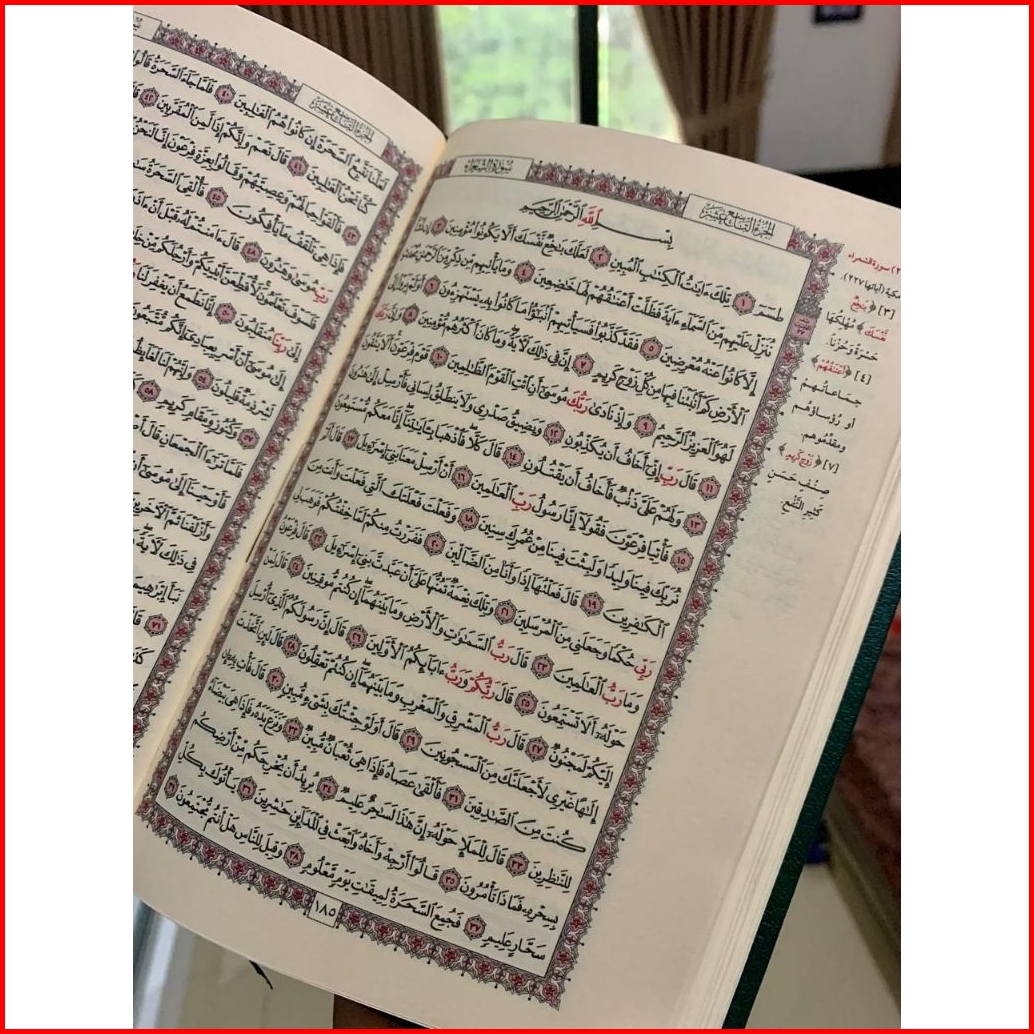 سُورَةُ الشُّعَرَاءِ
الجُزْءُ التَّاسِعَ عَشَرَ
بِسْمِ ٱللَّهِ ٱلرَّحْمَٰنِ ٱلرَّحِيمِ
طسٓمٓ ١ تِلْكَ ءَايَٰتُ ٱلْكِتَٰبِ ٱلْمُبِينِ ٢ لَعَلَّكَ بَٰخِعٌ نَّفْسَكَ أَلَّا يَكُونُوا۟ مُؤْمِنِينَ ٣ إِن نَّشَأْ
نُنَزِّلْ عَلَيْهِم مِّنَ ٱلسَّمَآءِ ءَايَةً فَظَلَّتْ أَعْنَٰقُهُمْ لَهَا خَٰضِعِينَ ٤ وَمَا يَأْتِيهِم مِّن ذِكْرٍ مِّنَ ٱلرَّحْمَٰنِ مُحْدَثٍ
إِلَّا كَانُوا۟ عَنْهُ مُعْرِضِينَ ٥ فَقَدْ كَذَّبُوا۟ فَسَيَأْتِيهِمْ أَنۢبَٰٓؤُا۟ مَا كَانُوا۟ بِهِۦ يَسْتَهْزِءُونَ ٦ أَوَلَمْ يَرَوْا۟ إِلَى
ٱلْأَرْضِ كَمْ أَنۢبَتْنَا فِيهَا مِن كُلِّ زَوْجٍ كَرِيمٍ ٧ إِنَّ فِى ذَٰلِكَ لَءَايَةً وَمَا كَانَ أَكْثَرُهُم مُّؤْمِنِينَ ٨ وَإِنَّ رَبَّكَ
لَهُوَ ٱلْعَزِيزُ ٱلرَّحِيمُ ٩ وَإِذْ نَادَىٰ رَبُّكَ مُوسَىٰٓ أَنِ ٱئْتِ ٱلْقَوْمَ ٱلظَّٰلِمِينَ ١٠ قَوْمَ فِرْعَوْنَ أَلَا يَتَّقُونَ
١١ قَالَ رَبِّ إِنِّىٓ أَخَافُ أَن يُكَذِّبُونِ ١٢ وَيَضِيقُ صَدْرِى وَلَا يَنطَلِقُ لِسَانِى فَأَرْسِلْ إِلَىٰ هَٰرُونَ
١٣ وَلَهُمْ عَلَىَّ ذَنۢبٌ فَأَخَافُ أَن يَقْتُلُونِ ١٤ قَالَ كَلَّا فَٱذْهَبَا بِـَٔايَٰتِنَآ إِنَّا مَعَكُم مُّسْتَمِعُونَ
١٥ فَأْتِيَا فِرْعَوْنَ فَقُولَآ إِنَّا رَسُولُ رَبِّ ٱلْعَٰلَمِينَ ١٦ أَنْ أَرْسِلْ مَعَنَا بَنِىٓ إِسْرَٰٓءِيلَ ١٧ قَالَ أَلَمْ
نُرَبِّكَ فِينَا وَلِيدًا وَلَبِثْتَ فِينَا مِنْ عُمُرِكَ سِنِينَ ١٨ وَفَعَلْتَ فَعْلَتَكَ ٱلَّتِى فَعَلْتَ وَأَنتَ مِنَ
ٱلْكَٰفِرِينَ ١٩ قَالَ فَعَلْتُهَآ إِذًا وَأَنَا۠ مِنَ ٱلضَّآلِّينَ ٢٠ فَفَرَرْتُ مِنكُمْ لَمَّا خِفْتُكُمْ فَوَهَبَ لِى
رَبِّى حُكْمًا وَجَعَلَنِى مِنَ ٱلْمُرْسَلِينَ ٢١ وَتِلْكَ نِعْمَةٌ تَمُنُّهَا عَلَىَّ أَنْ عَبَّدتَّ بَنِىٓ إِسْرَٰٓءِيلَ ٢٢ قَالَ فِرْعَوْنُ
وَمَا رَبُّ ٱلْعَٰلَمِينَ ٢٣ قَالَ رَبُّ ٱلسَّمَٰوَٰتِ وَٱلْأَرْضِ وَمَا بَيْنَهُمَآ إِن كُنتُم مُّوقِنِينَ ٢٤ قَالَ لِمَنْ
حَوْلَهُۥٓ أَلَا تَسْتَمِعُونَ ٢٥ قَالَ رَبُّكُمْ وَرَبُّ ءَابَآئِكُمُ ٱلْأَوَّلِينَ ٢٦ قَالَ إِنَّ رَسُولَكُمُ ٱلَّذِىٓ أُرْسِلَ
إِلَيْكُمْ لَمَجْنُونٌ ٢٧ قَالَ رَبُّ ٱلْمَشْرِقِ وَٱلْمَغْرِبِ وَمَا بَيْنَهُمَآ إِن كُنتُمْ تَعْقِلُونَ ٢٨ قَالَ لَئِنِ ٱتَّخَذْتَ
إِلَٰهًا غَيْرِى لَأَجْعَلَنَّكَ مِنَ ٱلْمَسْجُونِينَ ٢٩ قَالَ أَوَلَوْ جِئْتُكَ بِشَىْءٍ مُّبِينٍ ٣٠ قَالَ فَأْتِ بِهِۦٓ إِن
كُنتَ مِنَ ٱلصَّٰدِقِينَ ٣١ فَأَلْقَىٰ عَصَاهُ فَإِذَا هِىَ ثُعْبَانٌ مُّبِينٌ ٣٢ وَنَزَعَ يَدَهُۥ فَإِذَا هِىَ بَيْضَآءُ
لِلنَّٰظِرِينَ ٣٣ قَالَ لِلْمَلَإِ حَوْلَهُۥٓ إِنَّ هَٰذَا لَسَٰحِرٌ عَلِيمٌ ٣٤ يُرِيدُ أَن يُخْرِجَكُم مِّنْ أَرْضِكُم
بِسِحْرِهِۦ فَمَاذَا تَأْمُرُونَ ٣٥ قَالُوٓا۟ أَرْجِهْ وَأَخَاهُ وَٱبْعَثْ فِى ٱلْمَدَآئِنِ حَٰشِرِينَ ٣٦ يَأْتُوكَ بِكُلِّ
سَحَّارٍ عَلِيمٍ ٣٧ فَجُمِعَ ٱلسَّحَرَةُ لِمِيقَٰتِ يَوْمٍ مَّعْلُومٍ ٣٨ وَقِيلَ لِلنَّاسِ هَلْ أَنتُم مُّجْتَمِعُونَ ٣٩
١٨٥
سورة الشعراء
مكية (آياتها ٢٢٧).
[٣] ﴿بَٰخِعٌ
نَّفْسَكَ﴾ مُهْلِكُهَا
حَسْرَةً وَحُزْنًا.
[٤] ﴿أَعْنَٰقُهُمْ﴾
جماعاتُهم
أو رُؤساؤهم
ومقدَّموهم.
[٧] ﴿زَوْجٍ كَرِيمٍ﴾
صنفٍ حسنٍ
كثير النَّفع.
الجُزْءُ التَّاسِعَ عَشَرَ
لَعَلَّنَا نَتَّبِعُ ٱلسَّحَرَةَ إِن كَانُوا۟ هُمُ ٱلْغَٰلِبِينَ ٤٠ فَلَمَّا جَآءَ ٱلسَّحَرَةُ قَالُوا۟
كُنَّا نَحْنُ ٱلْغَٰلِبِينَ ٤١ قَالَ نَعَمْ وَإِنَّكُمْ إِذًا لَّمِنَ ٱلْمُقَرَّبِينَ ٤٢
٤٣ فَأَلْقَوْا۟ حِبَالَهُمْ وَعِصِيَّهُمْ وَقَالُوا۟ بِعِزَّةِ فِرْعَوْنَ إِنَّا لَنَحْنُ
فَإِذَا هِىَ تَلْقَفُ مَا يَأْفِكُونَ ٤٥ فَأُلْقِىَ ٱلسَّحَرَةُ
رَبِّ مُوسَىٰ وَهَٰرُونَ ٤٨ قَالَ ءَامَنتُمْ لَهُۥ قَبْلَ أَنْ ءَاذَنَ
فَلَسَوْفَ تَعْلَمُونَ لَأُقَطِّعَنَّ أَيْدِيَكُمْ وَأَرْجُلَكُم مِّنْ
إِلَىٰ رَبِّنَا مُنقَلِبُونَ ٥٠ إِنَّا نَطْمَعُ أَن يَغْفِرَ لَنَا
إِلَىٰ مُوسَىٰٓ أَنْ أَسْرِ بِعِبَادِىٓ إِنَّكُم مُّتَّبَعُونَ
لَشِرْذِمَةٌ قَلِيلُونَ ٥٤ وَإِنَّهُمْ لَنَا لَغَآئِظُونَ
٥٧ وَكُنُوزٍ وَمَقَامٍ كَرِيمٍ ٥٨
فَلَمَّا تَرَٰٓءَا ٱلْجَمْعَانِ قَالَ
فَأَوْحَيْنَآ إِلَىٰ مُوسَىٰٓ أَنِ
وَأَزْلَفْنَا ثَمَّ ٱلْءَاخَرِينَ
فِى ذَٰلِكَ لَءَايَةً
نَبَأَ إِبْرَٰهِيمَ
٧١